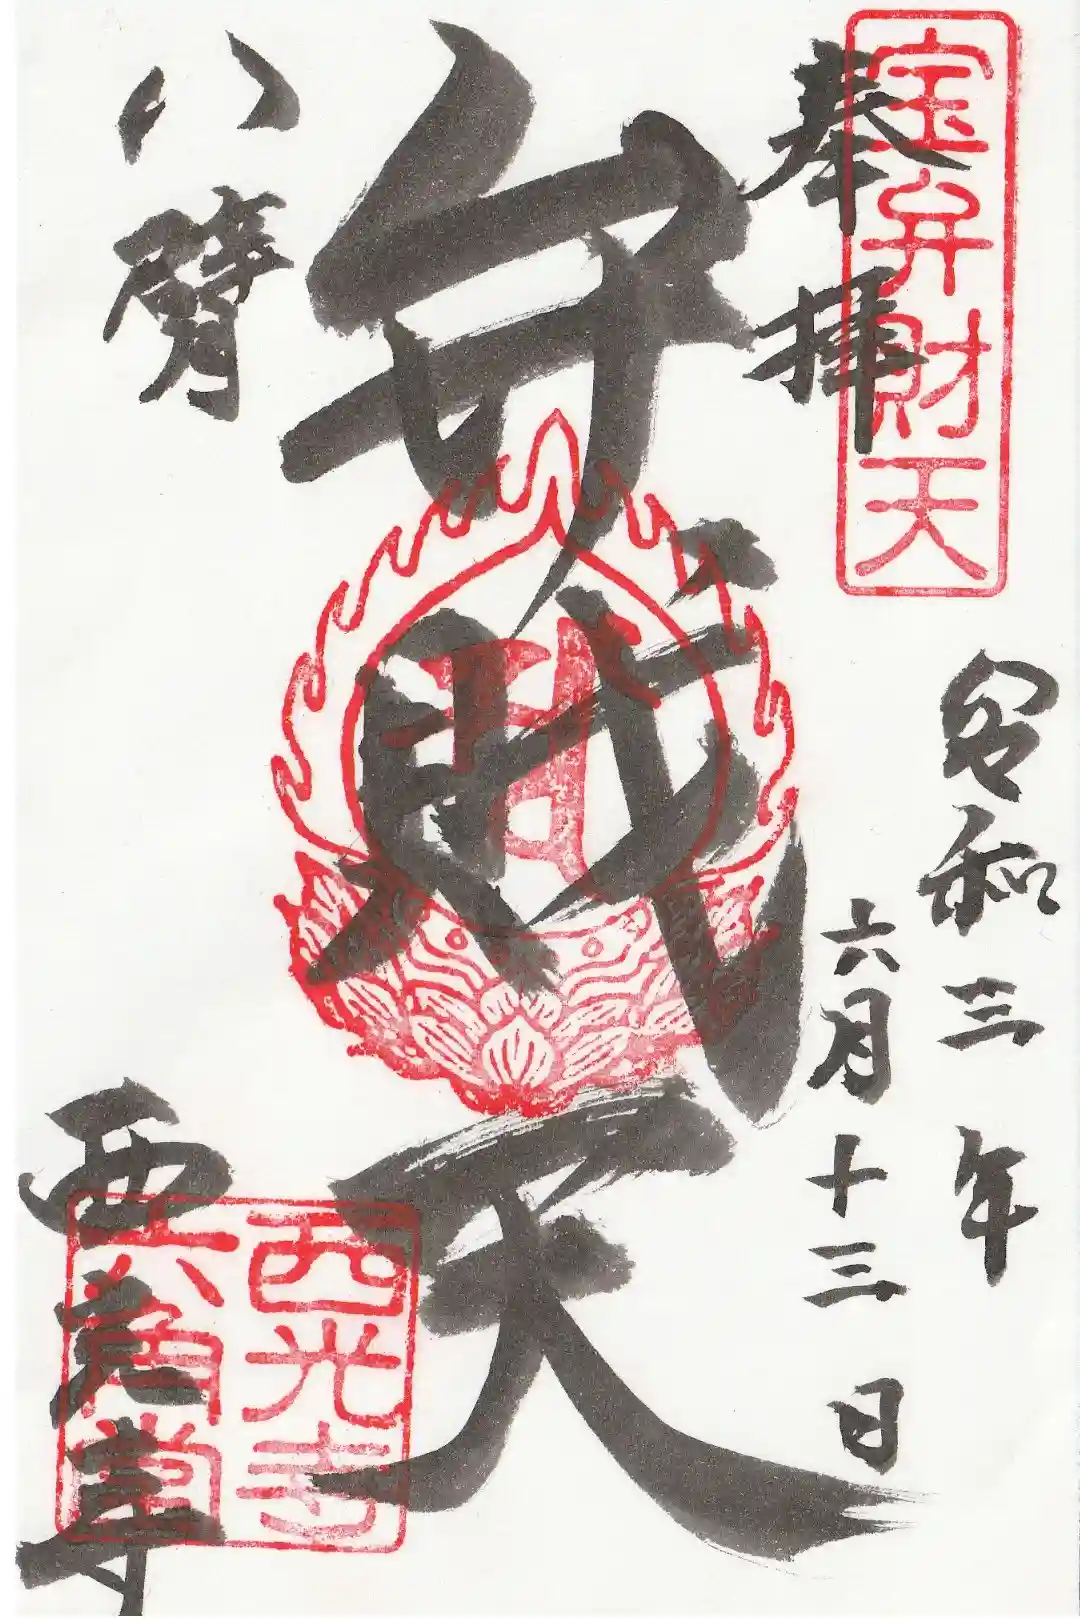 奉拝
宝弁財天
令和三年
六月十三日
弁財天
八臂
西光寺
西光寺
六角堂